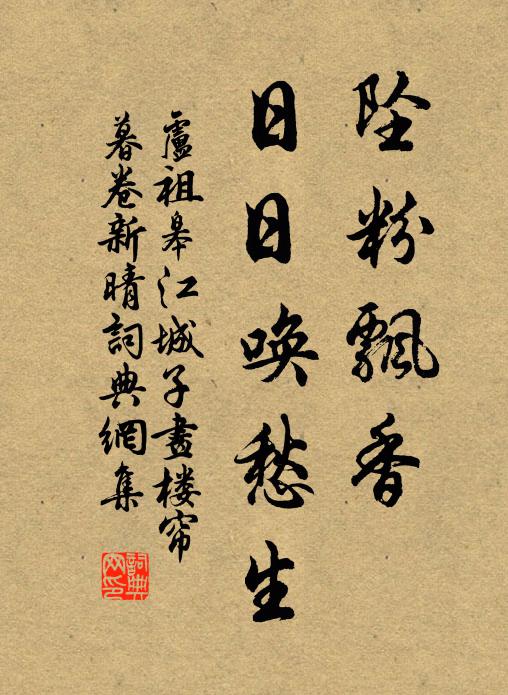 坠粉飄香
日日唤愁生
盧祖皋江城子畫楼帘
暮卷新晴詞典網集
詞典网印